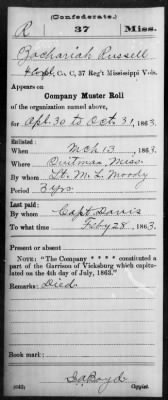 (Confederate.)
R 37 Miss.
Zachariah Russell
Co. C, 37 Reg't Mississippi Vols.
Appears on
Company Muster Roll
of the organization named above,
for Apl. 30 to Oct. 31, 1863.
Enlisted:
When Mch 13, 1863.
Where Quitman, Miss.
By whom Lt. M. L. Moody
Period 3 yrs.
Last paid:
By whom Capt. Davis
To what time Feby 28, 1863.
Present or absent
NOTE: "The Company * * * * constituted a
part of the Garrison of Vicksburg which capitu-
lated on the 4th day of July, 1863."
Remarks: Died
Book mark:
Boyd
Copyist.